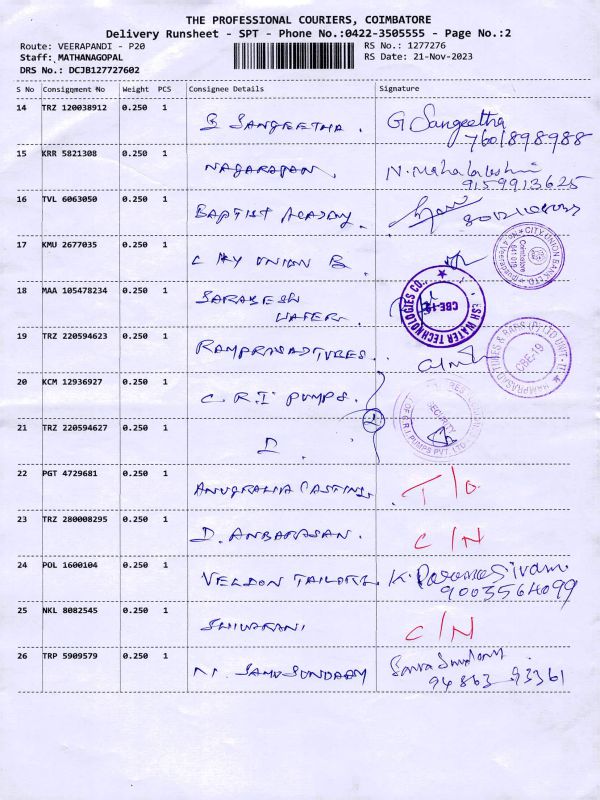 THE PROFESSIONAL COURIERS, COIMBATORE
Delivery Runsheet - SPT - Phone No.:0422-3505555 - Page No.:2
Route: VEERAPANDI - P20 RS No.: 1277276
Staff: MATHANAGOPAL RS Date: 21-Nov-2023
DRS No.: DCJB127727602
S No Consignment No Weight PCS Consignee Details Signature
14 TRZ 120038912 0.250 1 G SANGEETHA. G Sangeetha
7601898988
15 KRR 5821308 0.250 1 NAGARAJAN. N. Mahalakshmi
9159913625
16 TVL 6063050 0.250 1 BAPTIST ACADEMY.
17 KMU 2677035 0.250 1 CITY UNION B.
CITY UNION BANK LTD
Coimbatore
18 MAA 105478234 0.250 1 SARAVESH
WATER.
ESH WATER TECHNOLOGIES CO.
CBE-19
19 TRZ 220594623 0.250 1 RAMPRASAD TUBES.
RAMPRASAD TUBES & BARS (P) LTD UNIT-II
CBE-19
20 KCM 12936927 0.250 1 C.R.I PUMPS.
2
SECURITY
PUMPS PVT. LTD
21 TRZ 220594627 0.250 1
22 PGT 4729681 0.250 1 CASTINGS. T/O
23 TRZ 280008295 0.250 1 D. ANBARASAN. C/N
24 POL 1600104 0.250 1 VELDON TAILORS K. Paramasivam
9003564099
25 NKL 8082545 0.250 1 SHIVARANI C/N
26 TRP 5909579 0.250 1
94863 93361